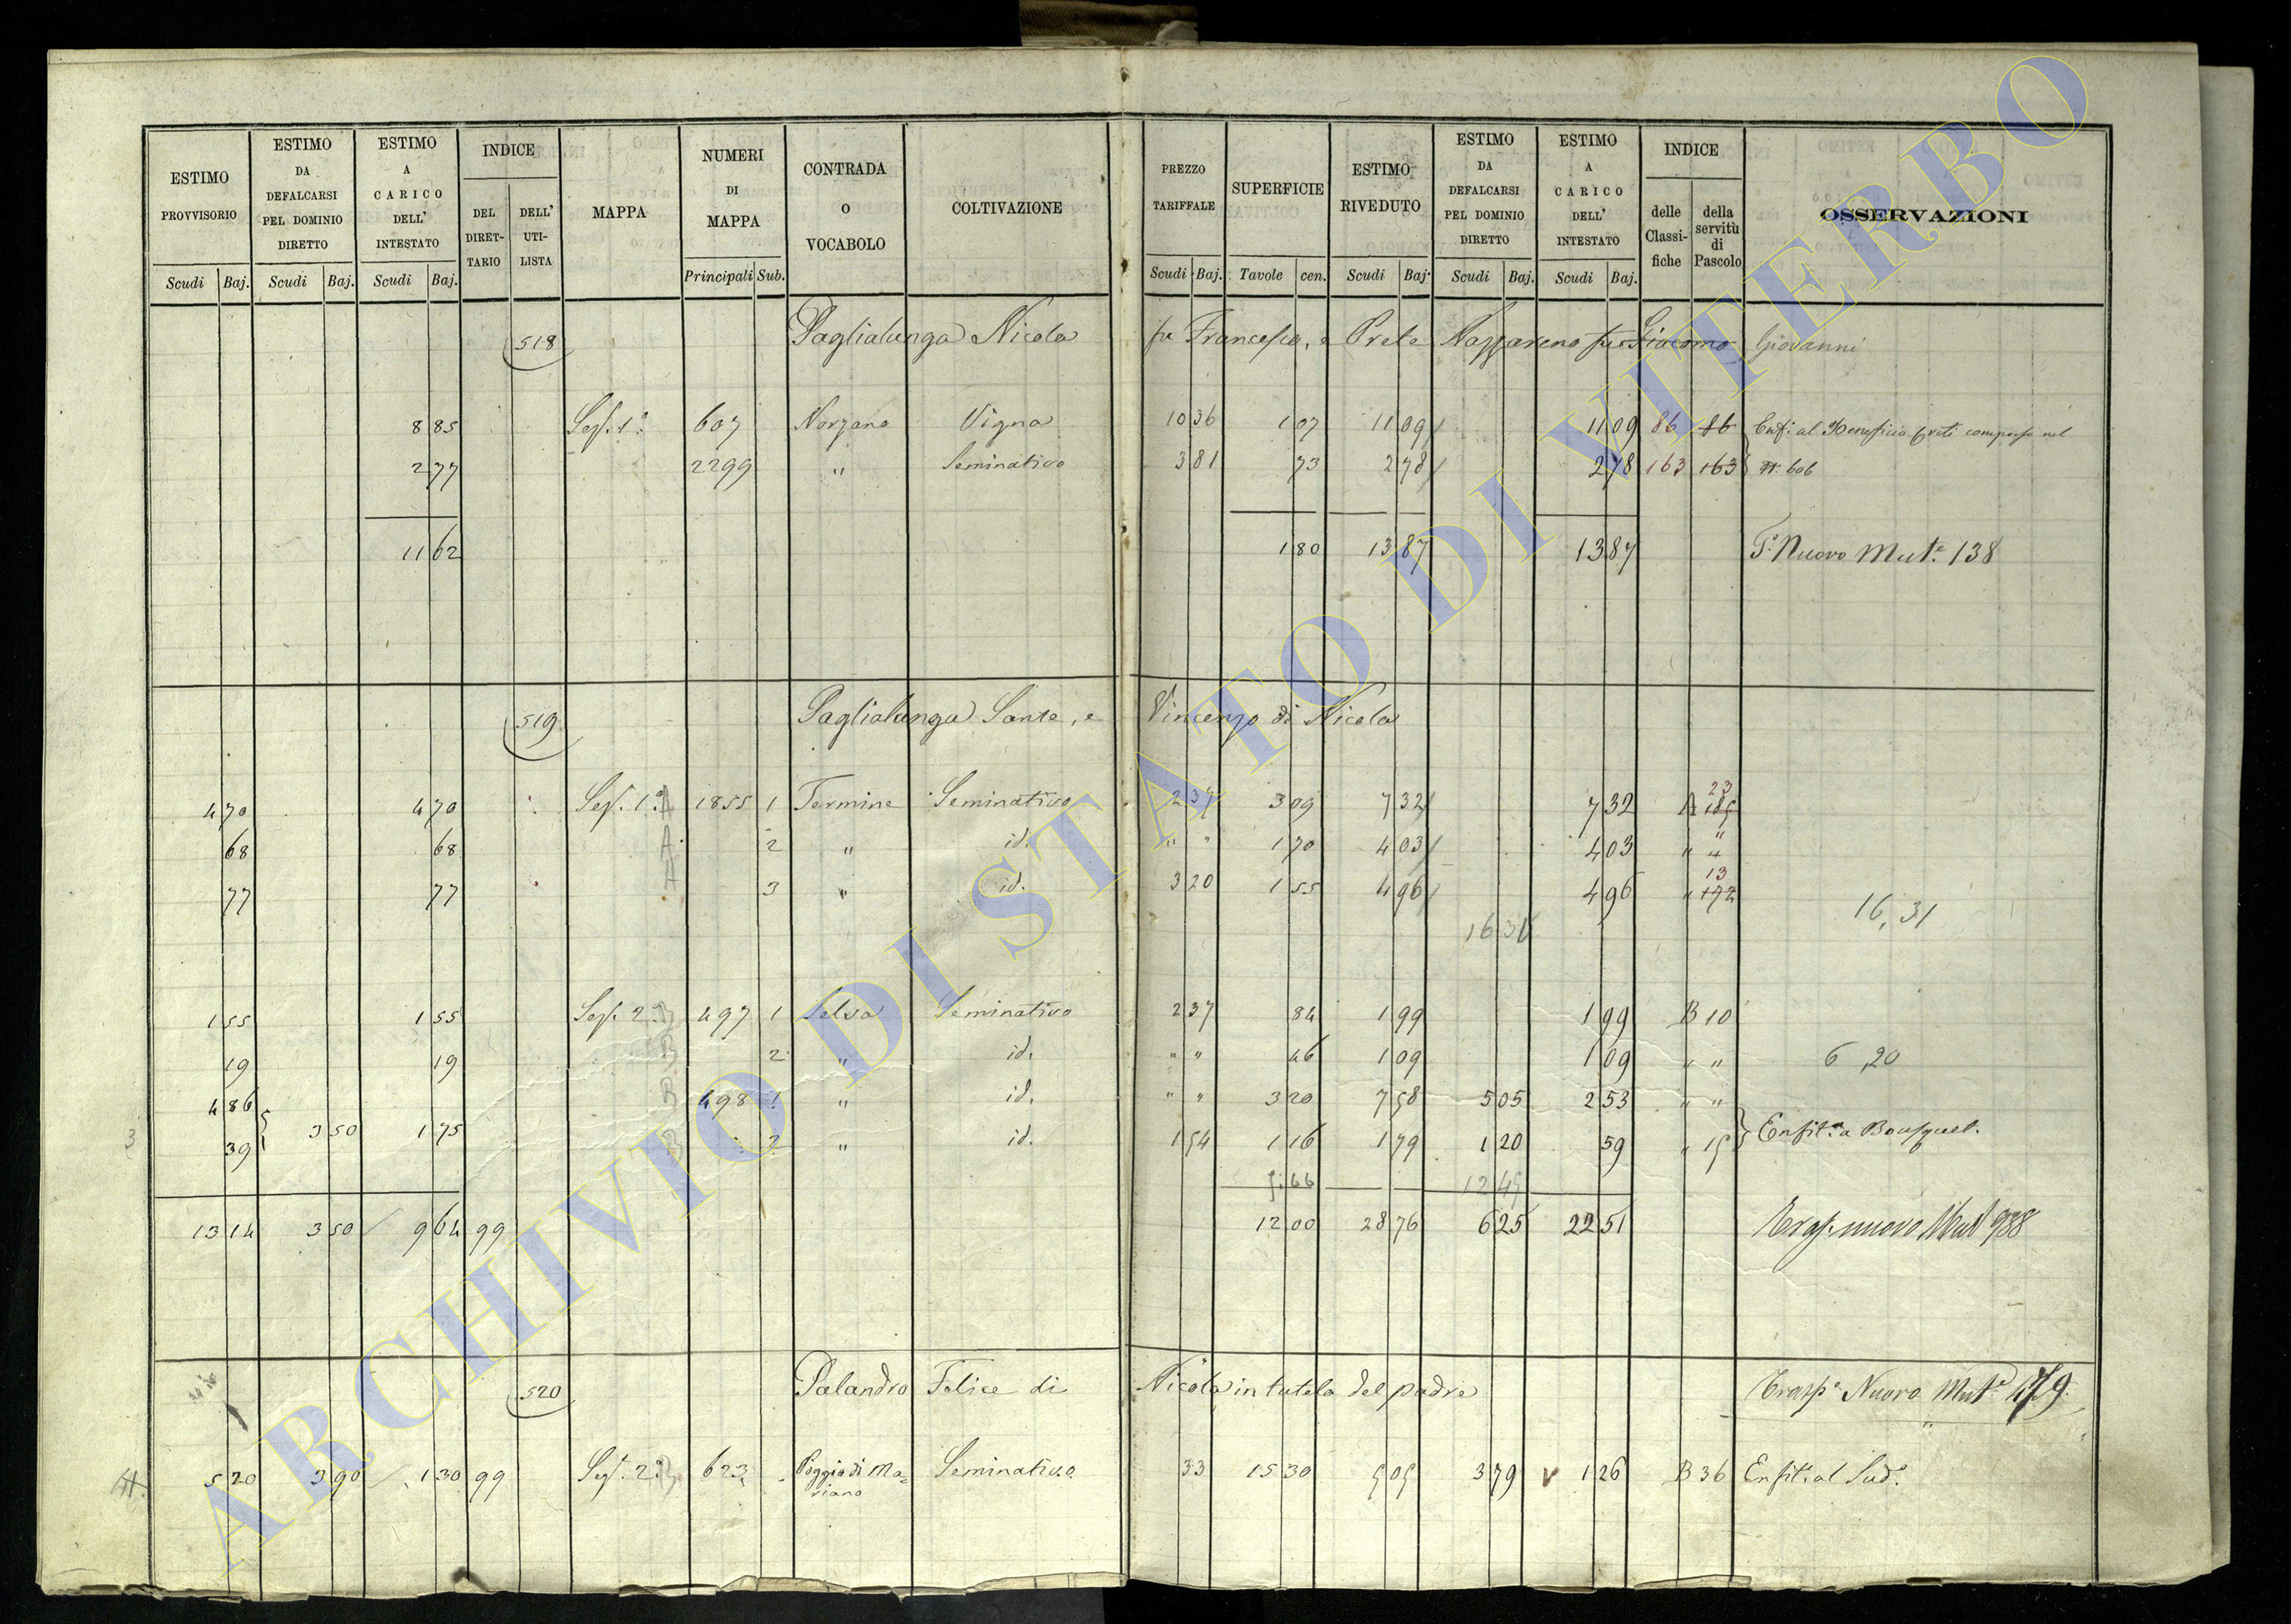 ESTIMO PROVVISORIO | ESTIMO DA DEFALCARSI PEL DOMINIO DIRETTO | ESTIMO A CARICO DELL' INTESTATO | INDICE | MAPPA | NUMERI DI MAPPA | CONTRADA O VOCABOLO | COLTIVAZIONE | PREZZO TARIFFALE | SUPERFICIE | ESTIMO RIVEDUTO | ESTIMO DA DEFALCARSI PEL DOMINIO DIRETTO | ESTIMO A CARICO DELL' INTESTATO | INDICE | OSSERVAZIONI
DEL DIRET-TARIO | DELL' UTI-LISTA | delle Classi-fiche | della servitù di Pascolo
Scudi Baj. | Scudi Baj. | Scudi Baj. | Principali Sub. | Scudi Baj. | Tavole cen. | Scudi Baj. | Scudi Baj. | Scudi Baj.
518 Paglialunga Nicola fu Francesco, e Prete Nazzareno fu Giacomo Giovanni
8 85 Sez. 1ª 607 Norzano Vigna 10 36 1 07 11 09 11 09 86 86 Enfi. al Beneficio
2 77 2299 " Seminativo 3 81 73 2 78 2 78 163 163 N. 606
11 62 1 80 13 87 13 87 T. Nuovo Mut.e 138
519 Paglialunga Sante, e Vincenzo di Nicola
4 70 4 70 Sez. 1ª A 1855 1 Termine Seminativo 2 37 3 09 7 32 7 32 A 185 23
68 68 A 2 " id. " " 1 70 4 03 4 03 " "
77 77 A 3 " id. 3 20 1 55 4 96 4 96 " 172 13
16 31 16,31
1 55 1 55 Sez. 2ª B 497 1 Selva Seminativo 2 37 84 1 99 1 99 B 10
19 19 B 2 " id. " " 46 1 09 1 09 " " 6,20
4 86 B 498 1 " id. " " 3 20 7 58 5 05 2 53 " "
3 39 3 50 1 75 B 2 " id. 1 54 1 16 1 79 1 20 59 " 15 Enfit. a Bousquet.
5.66 12 45
13 14 3 50 9 64 99 12 00 28 76 6 25 22 51 Trasp. nuovo Mut 988
520 Palandro Felice di Nicola in tutela del padre Trasp.o Nuovo Mut.e 479
5 20 3 90 1 30 99 Sez. 2ª B 623 Poggio di Mariano Seminativo 33 15 30 5 05 3 79 1 26 B 36 Enfit. al Sud.o
ARCHIVIO DI STATO DI VITERBO